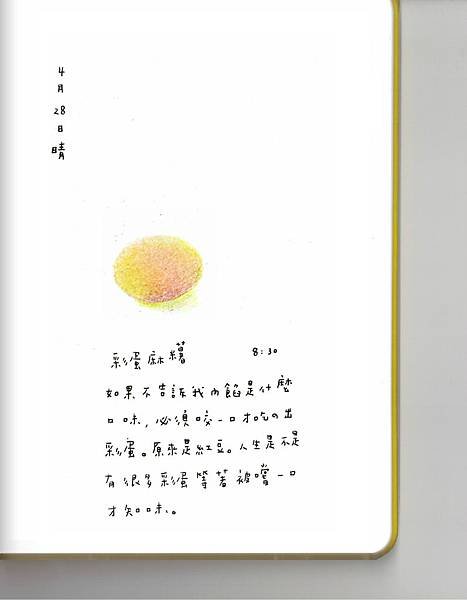 4月28日晴
彩蛋麻糬 8:30
如果不告訴我內餡是什麼
口味,必須咬一口才吃の出
彩蛋。原來是紅豆。人生是不是
有很多彩蛋等著被嚐一口
才知味。